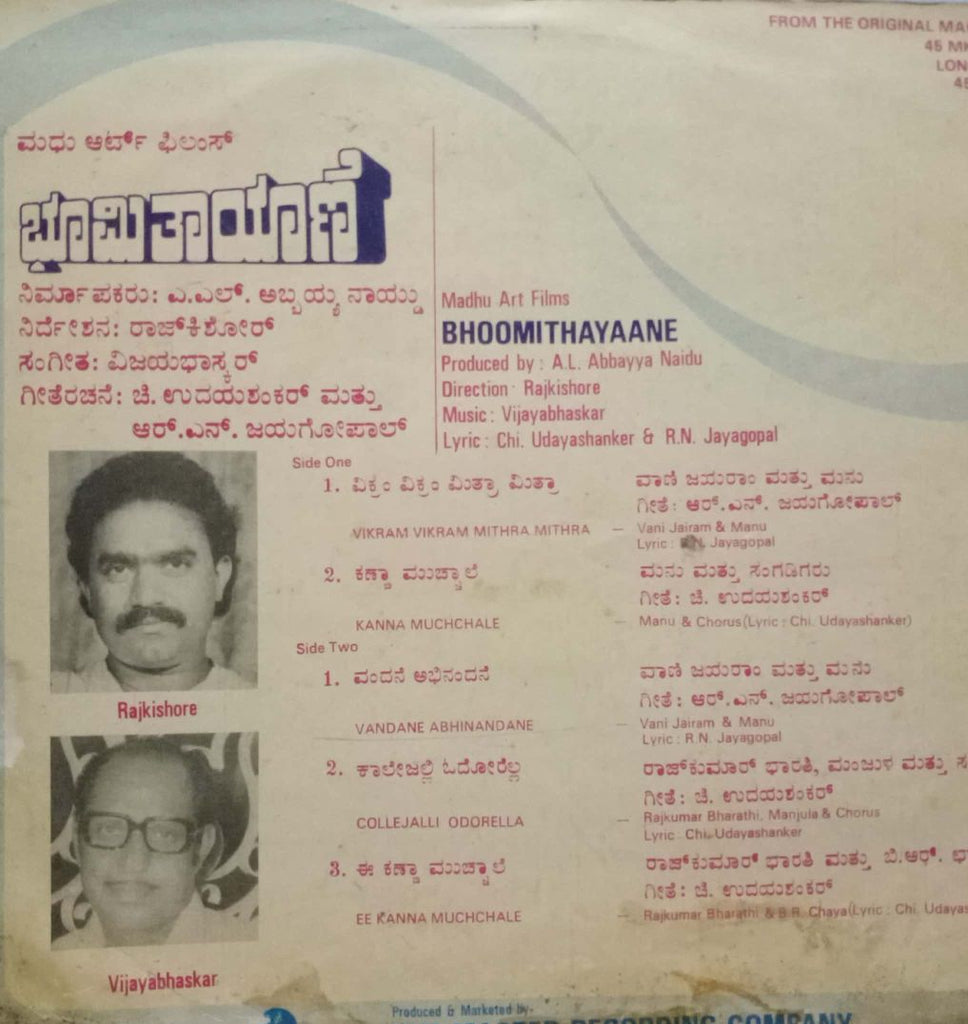 FROM THE ORIGINAL
45
45
ಮಧು ಆರ್ಟ್ ಫಿಲಂಸ್
ಭೂಮಿತಾಯಾಣೆ
ನಿರ್ಮಾಪಕರು: ಎ.ಎಲ್. ಅಬ್ಬಯ್ಯ ನಾಯ್ಡು
ನಿರ್ದೇಶನ: ರಾಜ್‌ಕಿಶೋರ್
ಸಂಗೀತ: ವಿಜಯಭಾಸ್ಕರ್
ಗೀತೆರಚನೆ: ಚಿ. ಉದಯಶಂಕರ್ ಮತ್ತು
ಆರ್.ಎನ್. ಜಯಗೋಪಾಲ್
Madhu Art Films
BHOOMITHAYAANE
Produced by : A.L. Abbayya Naidu
Direction : Rajkishore
Music : Vijayabhaskar
Lyric : Chi. Udayashanker & R.N. Jayagopal
Side One
1. ವಿಕ್ರಂ ವಿಕ್ರಂ ಮಿತ್ರಾ ಮಿತ್ರಾ
ವಾಣಿ ಜಯರಾಂ ಮತ್ತು ಮನು
ಗೀತೆ: ಆರ್.ಎನ್. ಜಯಗೋಪಾಲ್
VIKRAM VIKRAM MITHRA MITHRA — Vani Jairam & Manu
Lyric : R.N. Jayagopal
2. ಕಣ್ಣಾ ಮುಚ್ಚಾಲೆ
ಮನು ಮತ್ತು ಸಂಗಡಿಗರು
ಗೀತೆ: ಚಿ. ಉದಯಶಂಕರ್
KANNA MUCHCHALE — Manu & Chorus (Lyric : Chi. Udayashanker)
Side Two
1. ವಂದನೆ ಅಭಿನಂದನೆ
ವಾಣಿ ಜಯರಾಂ ಮತ್ತು ಮನು
ಗೀತೆ: ಆರ್.ಎನ್. ಜಯಗೋಪಾಲ್
VANDANE ABHINANDANE — Vani Jairam & Manu
Lyric : R.N. Jayagopal
2. ಕಾಲೇಜಲ್ಲಿ ಓದೋರೆಲ್ಲ
ರಾಜ್‌ಕುಮಾರ್ ಭಾರತಿ, ಮಂಜುಳ ಮತ್ತು
ಗೀತೆ: ಚಿ. ಉದಯಶಂಕರ್
COLLEJALLI ODORELLA — Rajkumar Bharathi, Manjula & Chorus
Lyric : Chi. Udayashanker
3. ಈ ಕಣ್ಣಾ ಮುಚ್ಚಾಲೆ
ರಾಜ್‌ಕುಮಾರ್ ಭಾರತಿ ಮತ್ತು ಬಿ.ಆರ್.
ಗೀತೆ: ಚಿ. ಉದಯಶಂಕರ್
EE KANNA MUCHCHALE — Rajkumar Bharathi & B.R. Chaya (Lyric : Chi.
Rajkishore
Vijayabhaskar
Produced & Marketed by-
RECORDING COMPANY